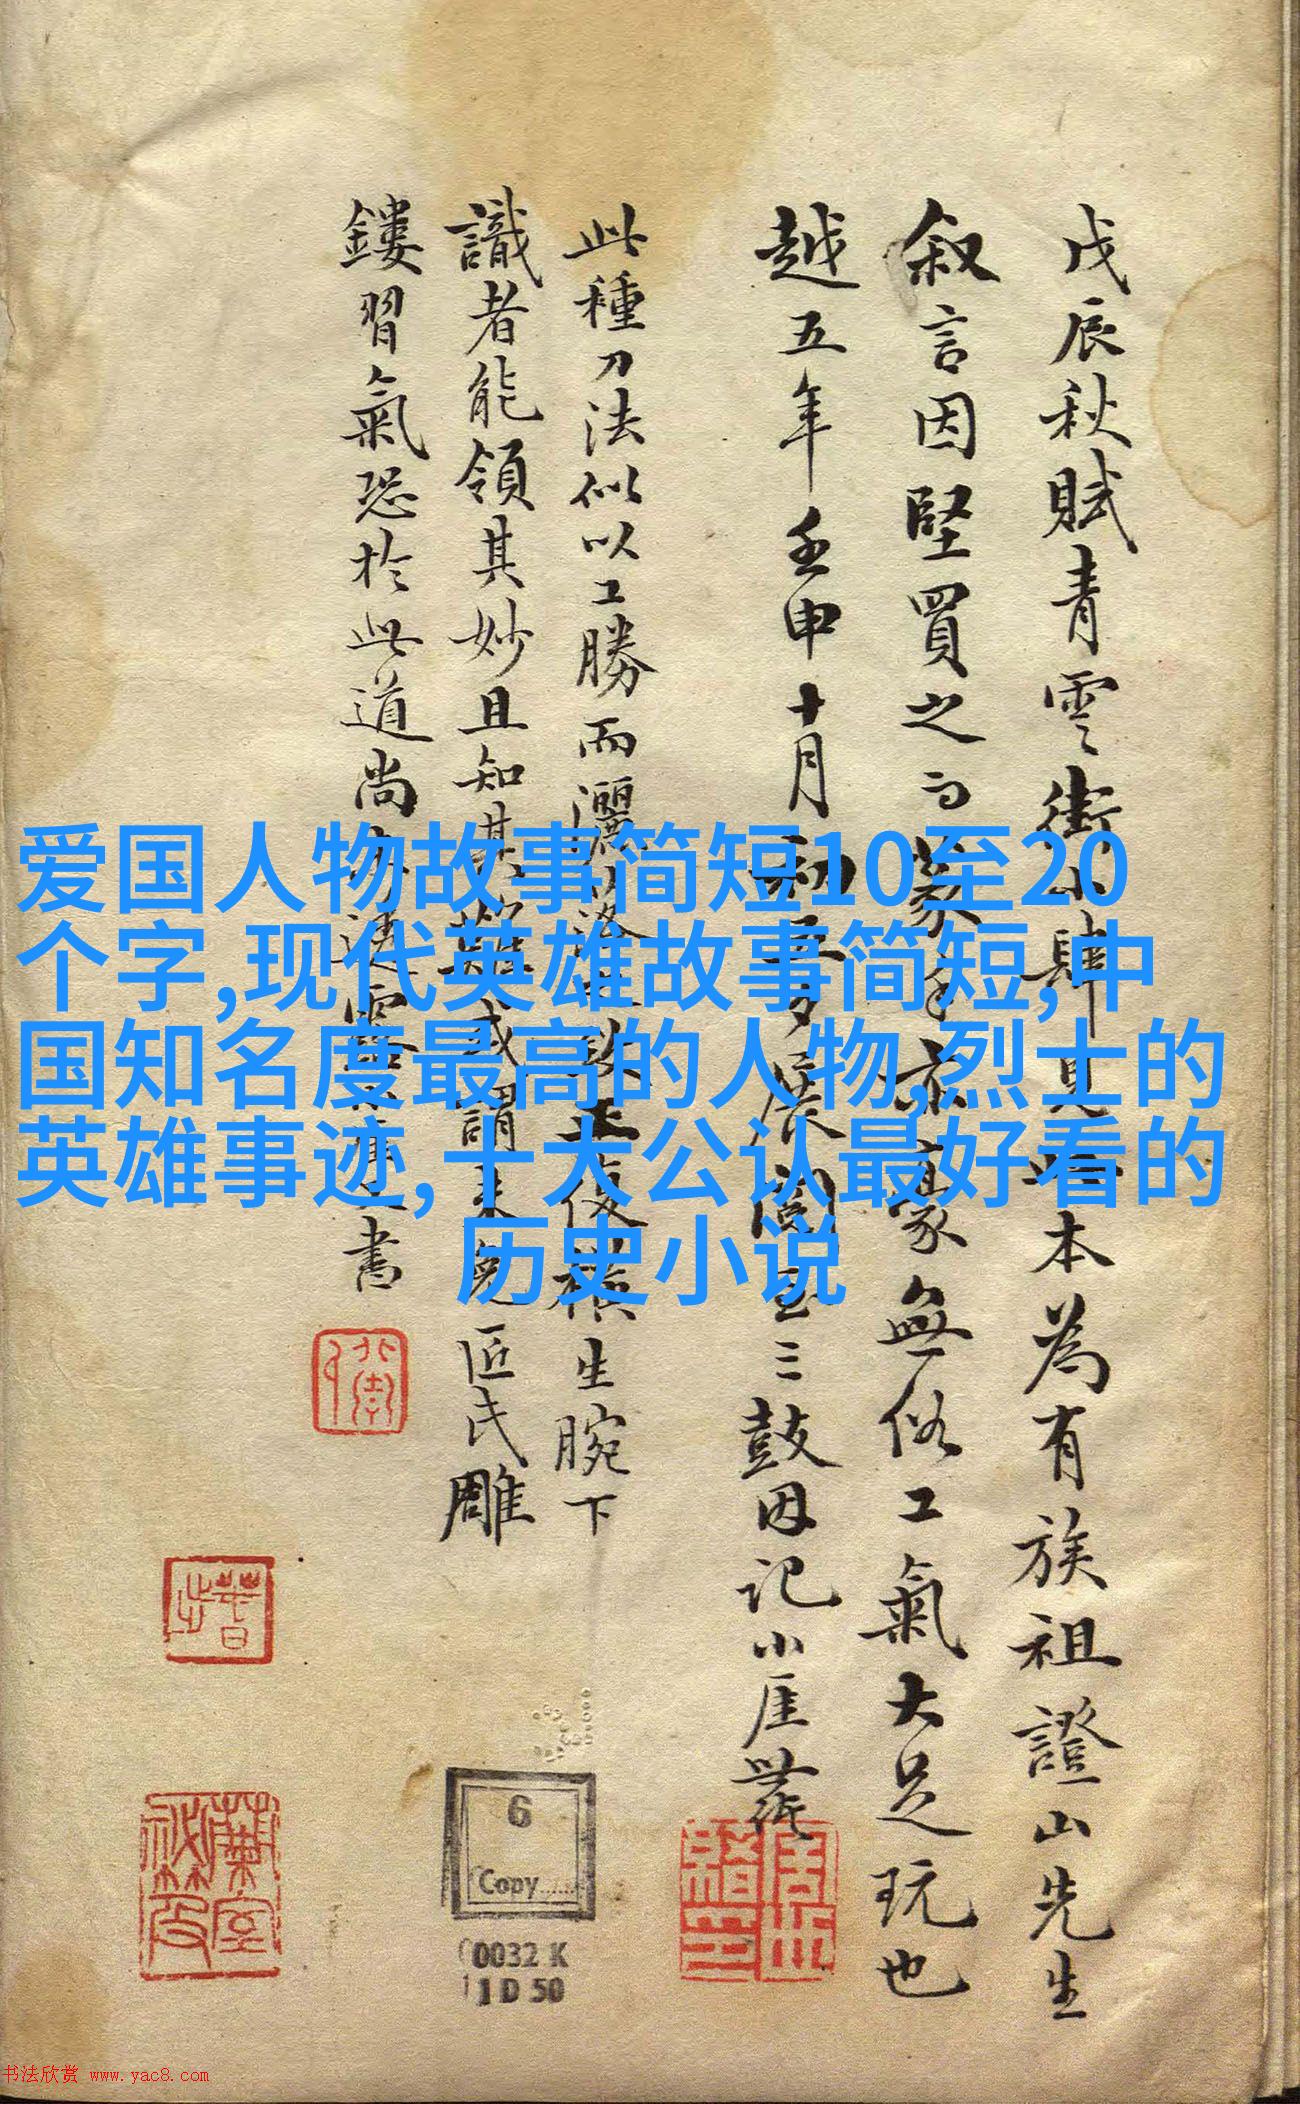 戊辰秋賦青雲街小肆見此本為有族祖證山先生
叙言因堅買之而蒙手亦豪無俗工氣大足玩也
越五年壬申十月初展閱至三鼓因記小厓
此種刀法似以工勝而灑落之致復橫生腕下
識者能領其妙且知其難或謂未免匠氏雕
鏤習氣恐於此道尚書
爱国人物故事简短10至20
个字,现代英雄故事简短,中
国知名度最高的人物,烈士的
英雄事迹,十大公认最好看的
历史小说
6
Copy
0032 K
1 D 50
书法欣赏 www.yac8.com